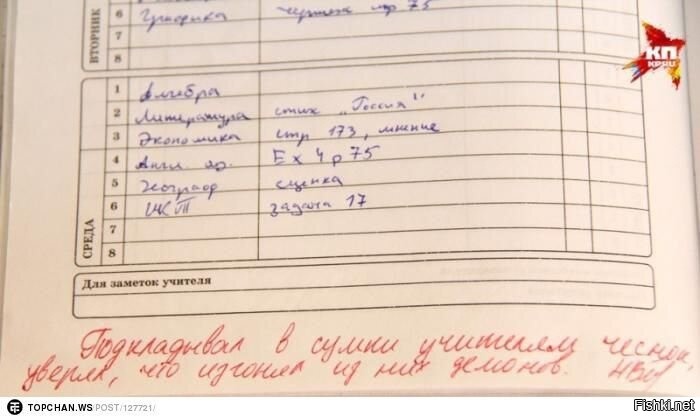 ВТОРНИК
6 Графика чертеж стр 75
7
8
КП
СРЕДА
1 Алгебра
2 Литература стих „Россия"
3 Экономика стр 173, мнение
4 Англ. яз. Ex 4 p 75
5 Географ сценка
6 ИКТ задача 17
7
8
Для заметок учителя
Подкладывал в сумки учителям чеснок,
уверял, что изгонял из них демонов.
TOPCHAN.WS POST/127721/
Fishki.net